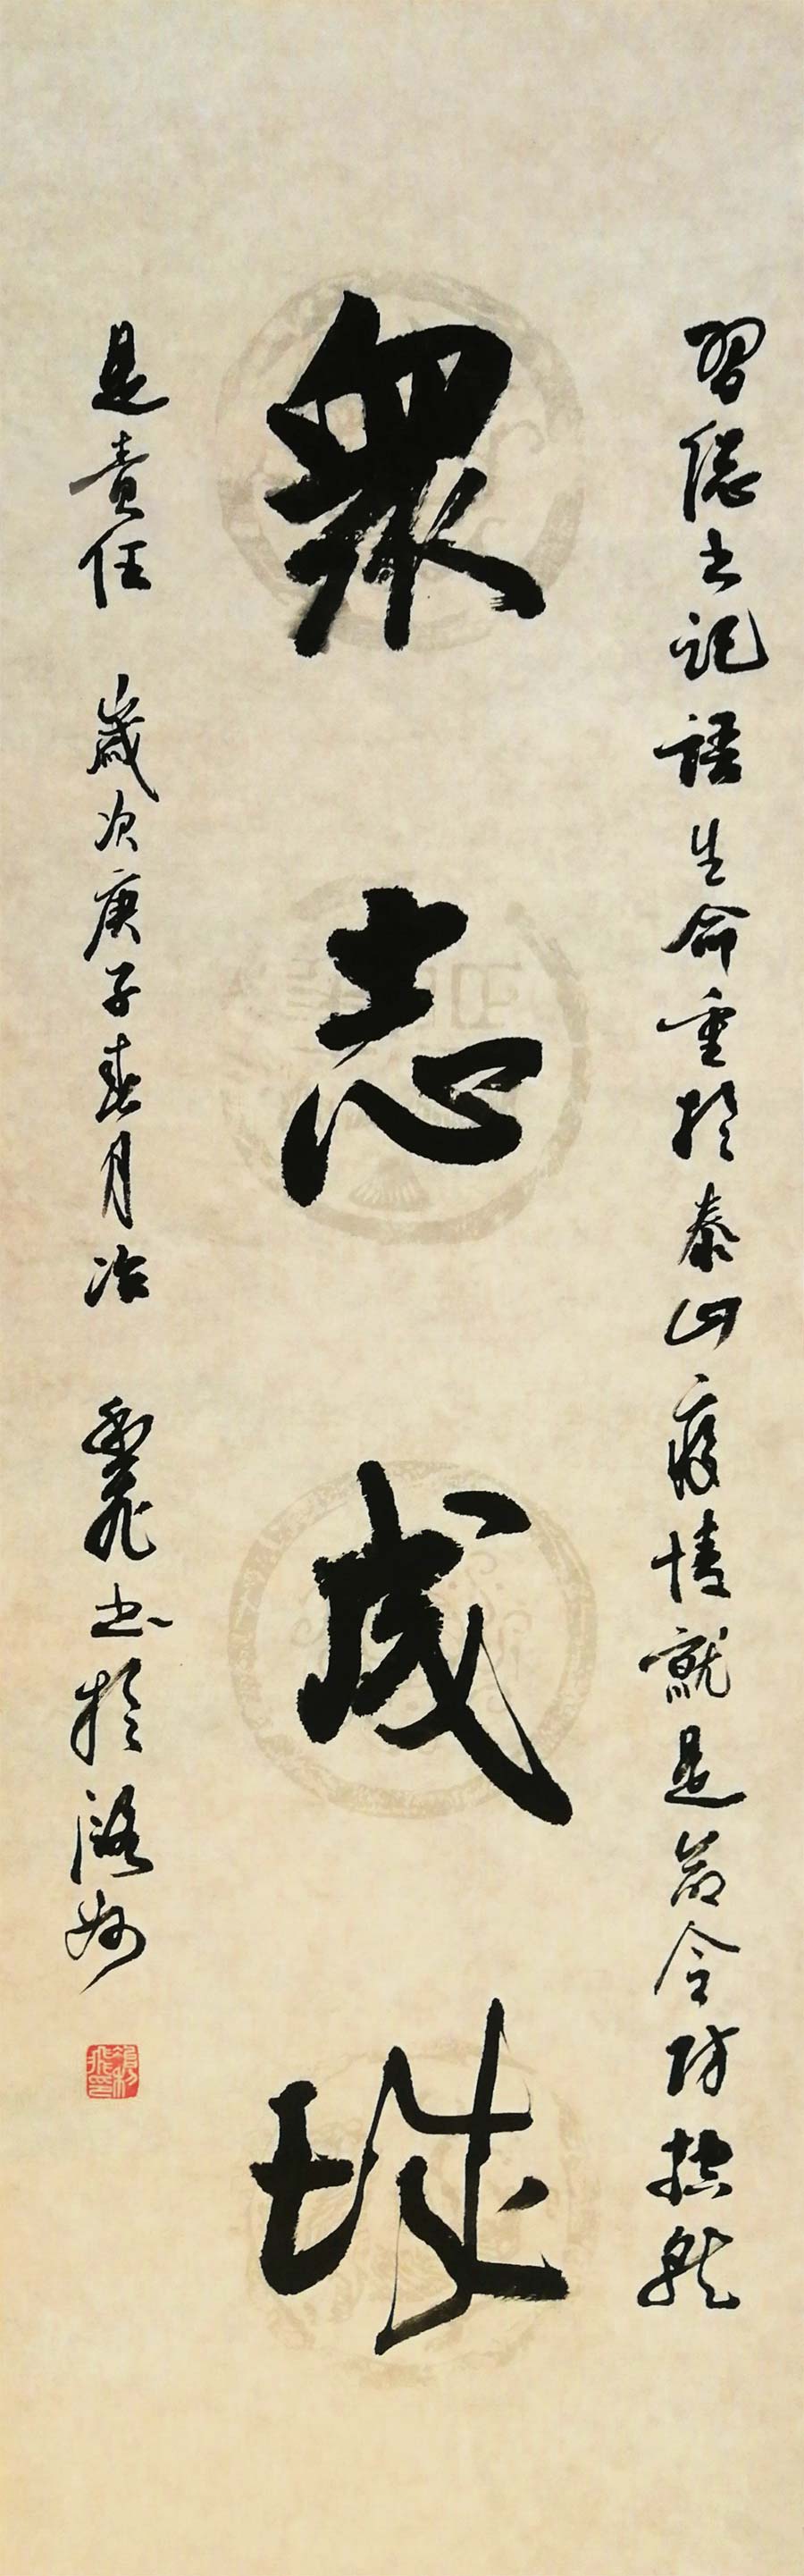 習總书記語生命重於泰山疫情就是命令防控就
眾志成城
是責任 歲次庚子春月冶 飛书於潞州